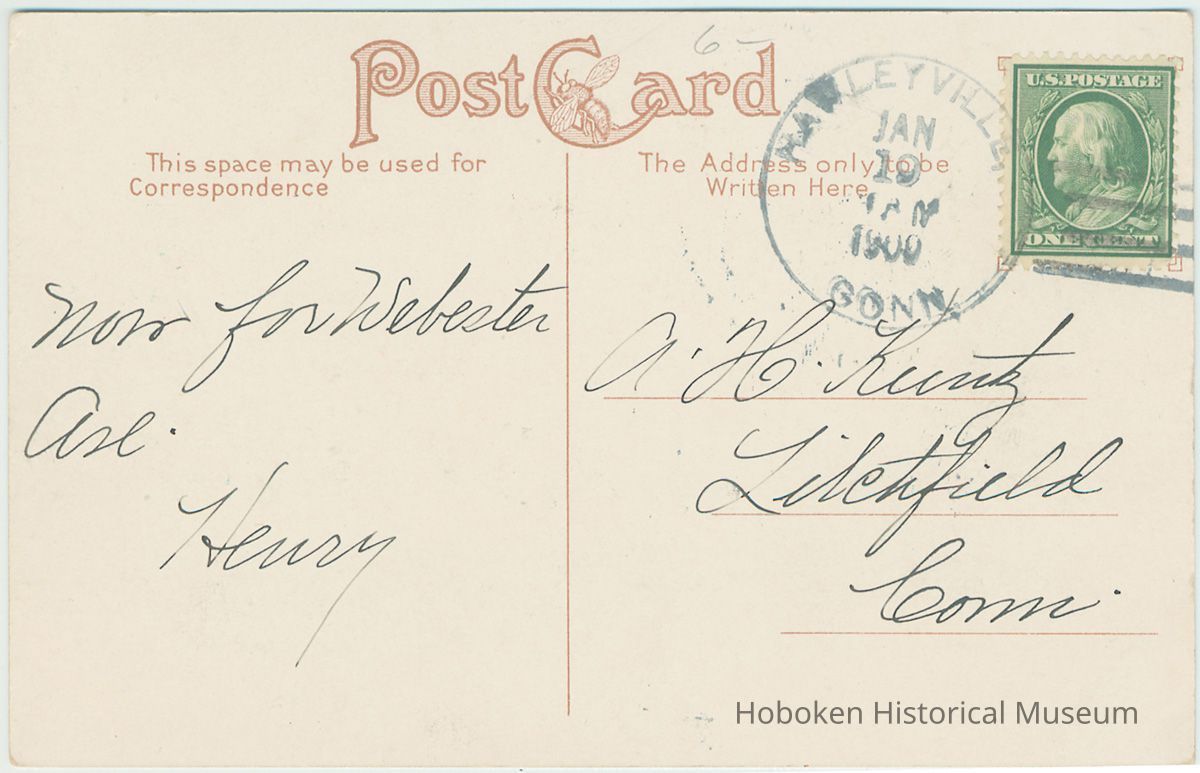 6-
Post Card
This space may be used for
Correspondence
The Address only to be
Written Here
HAWLEYVILLE,
JAN
19
1909
CONN.
U.S.POSTAGE
ONE CENT
Now for Webester
Ave.
Henry
A. H. Kuntz
Litchfield
Conn.
Hoboken Historical Museum